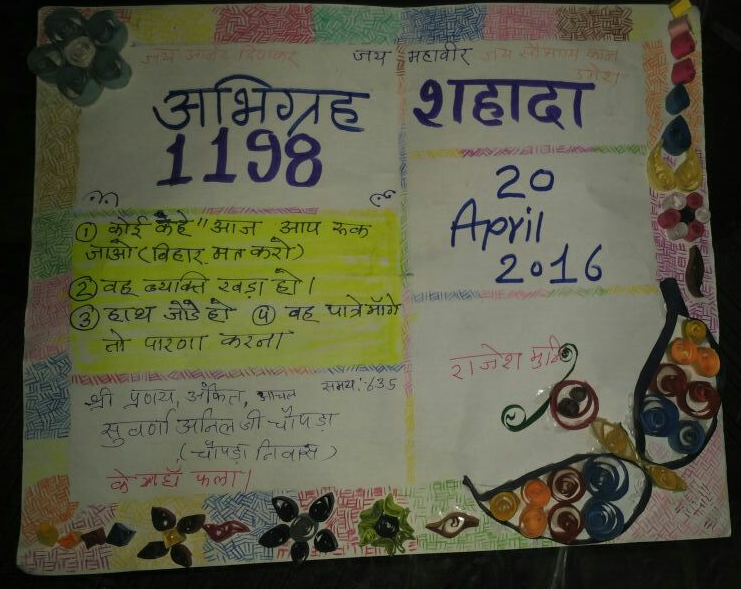 जय आनंद दिवाकर
जय महावीर
जय सौभाग्य
उमेश
अभिग्रह शहादा
1198
20
April
2016
① कोई कहे "आज आप रूक
जाओ (विहार मत करो)
② वह व्यक्ति खड़ा हो।
③ हाथ जोडे हो ④ वह पात्रे माँगे
तो पारणा करना
राजेश मुनि
समय: 635
श्री प्रणय, अंकित, आचल
सुवर्णा अनिल जी चौपड़ा
(चौपड़ा निवास)
के यहाँ फला।